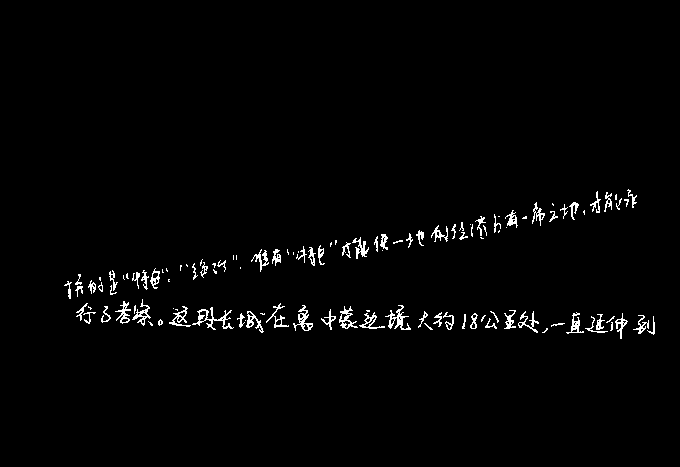 择的是“特色”、“绝活”。唯有“特色”才能使一地的经济占有一席之地,才能永
行了考察。这段长城在离中蒙边境大约18公里处,一直延伸到